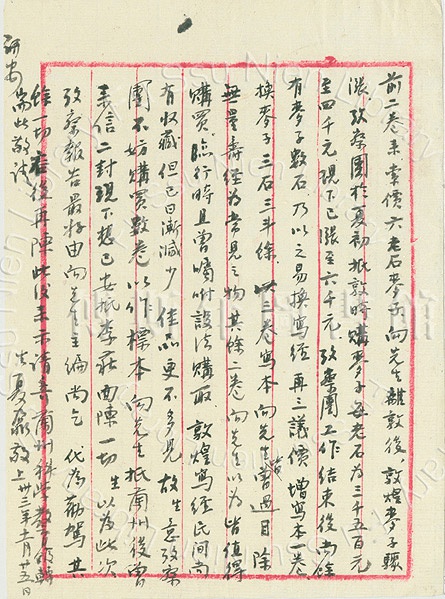 前二卷系索價六老石麥子,向先生離敦後,敦煌麥子驟
漲,攷察團於夏初抵敦時購麥子每老石為三千五百元
至四千元,現下已漲至六千元,攷察團工作結束後尚餘
有麥子數石,乃以之易換寫經,再三議價,增寫本一卷
換麥子三石三斗餘。此卷寫本向先生皆曾過目,除
無量壽經為常見之物,其餘二卷向先生以為皆值得
購買,臨行時且曾囑咐設法購取。敦煌寫經民間尚
有收藏,但已日漸減少,佳品更不多見,故生意攷察
團不妨購買數卷,以作標本。向先生抵蘭州後曾
來信二封,現下想已安抵李莊,面陳一切。生以為此次
攷察報告最好由向先生主編,尚乞代為勸駕。其
餘一切容後再陳,此後來示請寄蘭州科學教育館轉
耑此敬請
研安
生夏鼐敬上 卅三年十一月廿五日